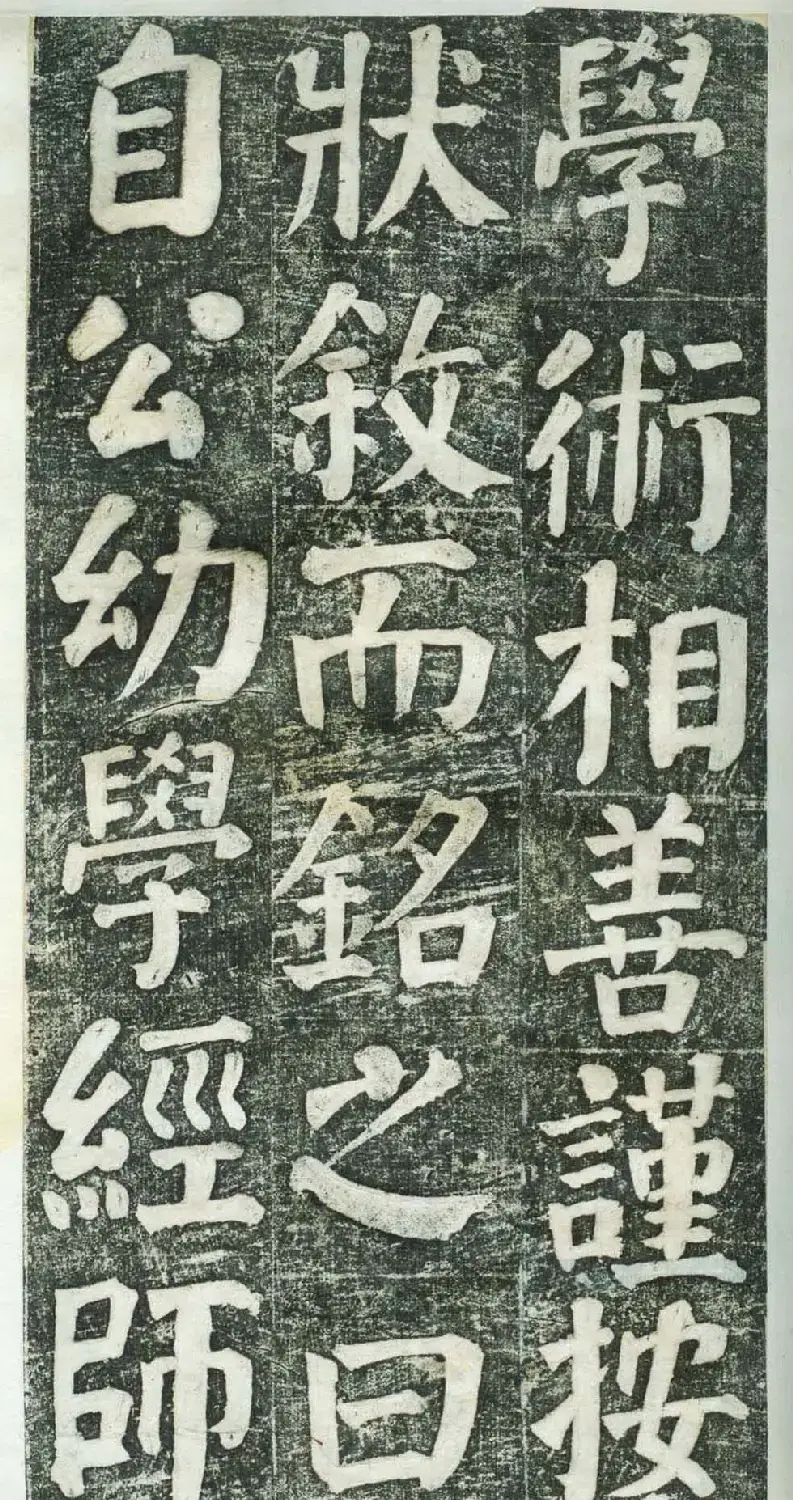 學術相善謹按
狀敘而銘之曰
自公幼學經師